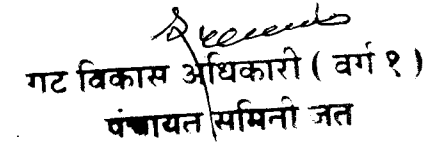 गट विकास अधिकारी ( वर्ग १ )
पंचायत समिती जत